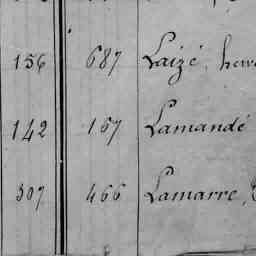 156 687 Laizé,
142 157 Lamandé
307 466 Lamarre,